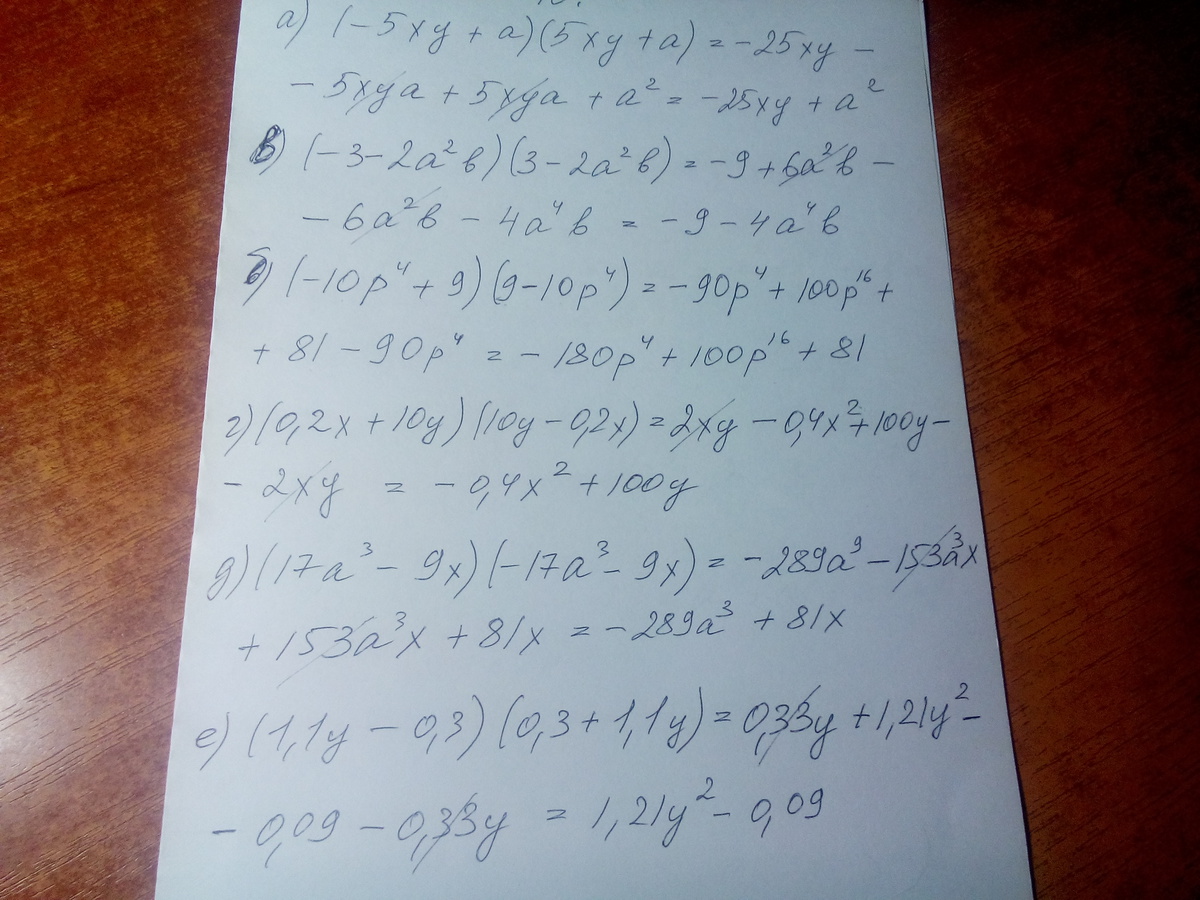 а) (-5xy + a)(5xy + a) = -25xy -
- 5xya + 5xya + a² = -25xy + a²
в) (-3 - 2a²в)(3 - 2a²в) = -9 + 6a²в -
- 6a²в - 4a⁴в = -9 - 4a⁴в
б) (-10p⁴ + 9)(9 - 10p⁴) = -90p⁴ + 100p¹⁶ +
+ 81 - 90p⁴ = -180p⁴ + 100p¹⁶ + 81
г) (0,2x + 10y)(10y - 0,2x) = 2xy - 0,4x² + 100y -
- 2xy = -0,4x² + 100y
д) (17a³ - 9x)(-17a³ - 9x) = -289a⁹ - 153a³x
+ 153a³x + 81x = -289a³ + 81x
е) (1,1y - 0,3)(0,3 + 1,1y) = 0,33y + 1,21y² -
- 0,09 - 0,33y = 1,21y² - 0,09